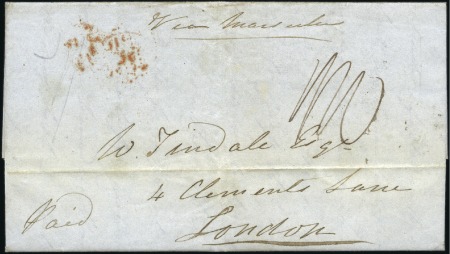 Via Marseilles
W. Tindale Esqr
4 Clements Lane
London
Paid